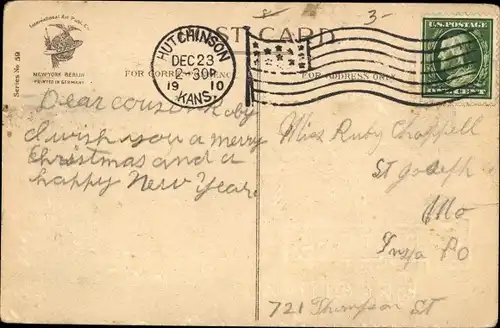 International Art Publ. Co.
NEW YORK BERLIN
PRINTED IN GERMANY
Series No 59
POST CARD
3-
HUTCHINSON
DEC 23
2-30P
1910
KANS.
U.S. POSTAGE
ONE CENT
FOR CORRESPONDENCE
FOR ADDRESS ONLY
Dear cousin Ruby
I wish you a merry
Christmas and a
happy New Year
Miss Ruby Chappell
St Joseph
Mo
721 Thompson St